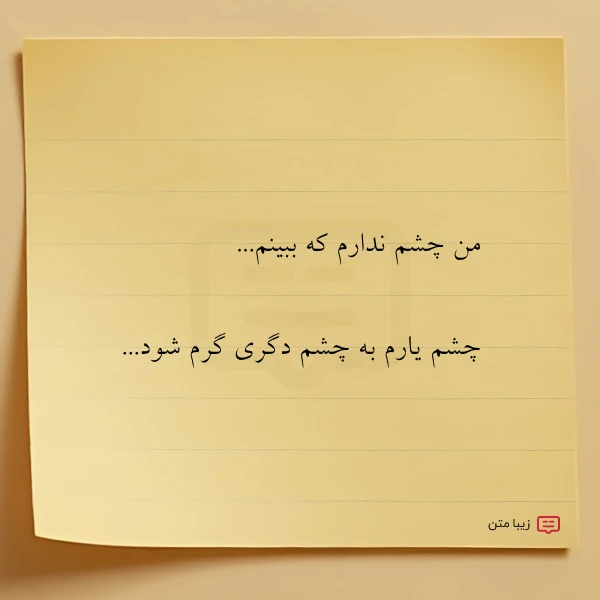 من چشم ندارم که ببینم...
چشم یارم به چشم دگری گرم شود...
زیبا متن